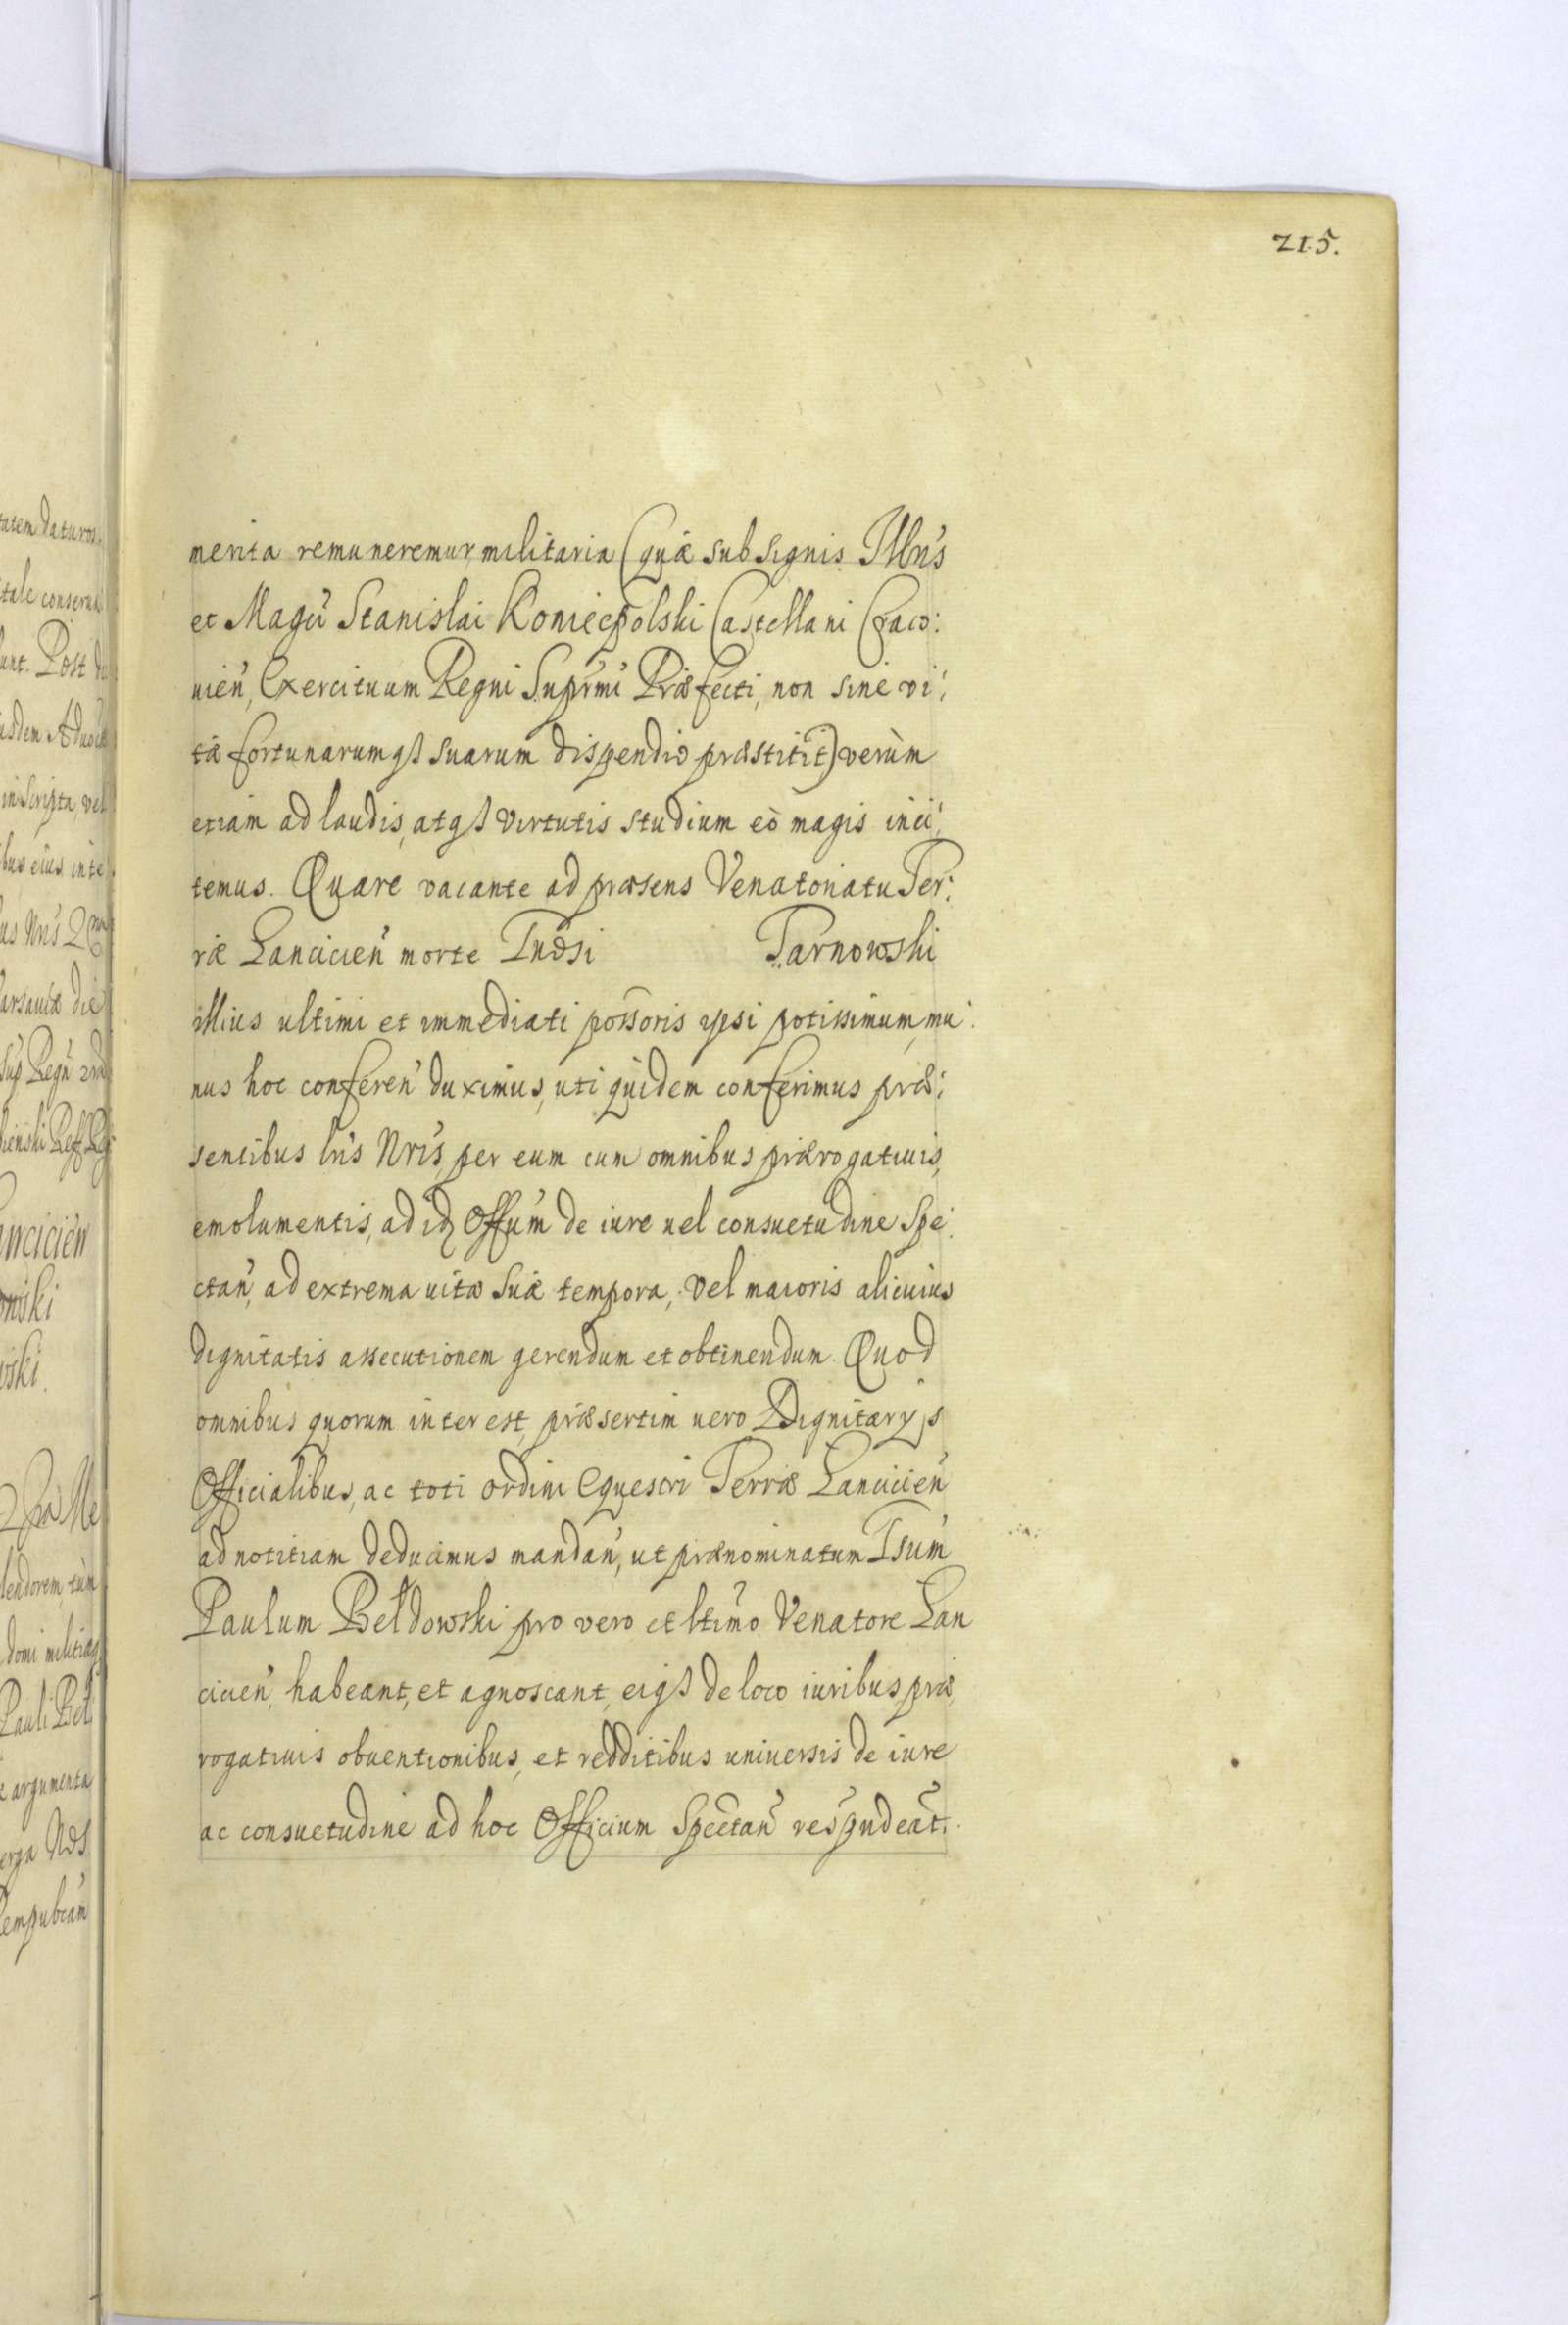 215.
merita remuneremur, militaria (quæ sub signis Illris
et Magci Stanislai Koniecpolski Castellani Craco:
uien, Exercituum Regni Suprmi Præfecti, non sine vi:
tæ fortunarumqs suarum dispendio præstitit) verùm
etiam ad laudis, atqs virtutis studium eò magis inci:
temus. Quare vacante ad præsens Venatoriatu Ter:
ræ Lancicien morte Tarnowski
illius ultimi et immediati possoris ipsi potissimum, mu:
nus hoc conferen duximus, uti quidem conferimus præ:
sentibus lris Nris, per eum cum omnibus prærogatiuis,
emolumentis, ad id Offum de iure uel consuetudine Spe:
ctan, ad extrema uitæ suæ tempora, vel maioris alicuius
dignitatis assecutionem gerendum et obtinendum. Quod
omnibus quorum interest, præsertim uero Dignitarijs
Officialibus, ac toti ordini Equestri Terræ Lancicien
ad notitiam deducimus mandan, ut prænominatum Gsum
Paulum Bełdowski pro vero et ltimo Venatore Lan
cicien, habeant, et agnoscant, eiqs de loco iuribus, præ
rogatiuis obuentionibus, et redditibus uniuersis de iure
ac consuetudine ad hoc Officium Spectan respndeat.
tatem daturos.
unt. Post
in scripta, vel
bus eius inte
ancicien
domi
Pauli Beł
argumenta
erga Nos